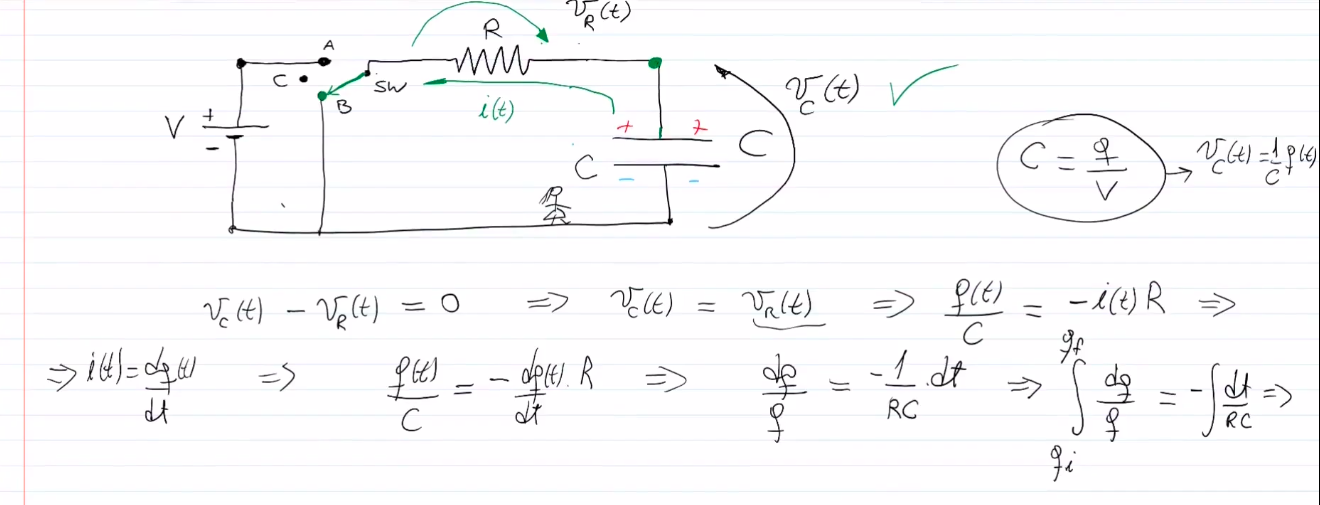 v_R(t)
R
A
C
SW
B
i(t)
V
+
-
+ +
C
- -
C
v_C(t) ✓
C = q/V → v_C(t) = 1/C q(t)
v_C(t) - v_R(t) = 0 => v_C(t) = v_R(t) => q(t)/C = -i(t) R =>
=> i(t) = dq(t)/dt => q(t)/C = - dq(t)/dt . R => dq/q = -1/RC . dt => ∫_{qi}^{qf} dq/q = -∫ dt/RC =>